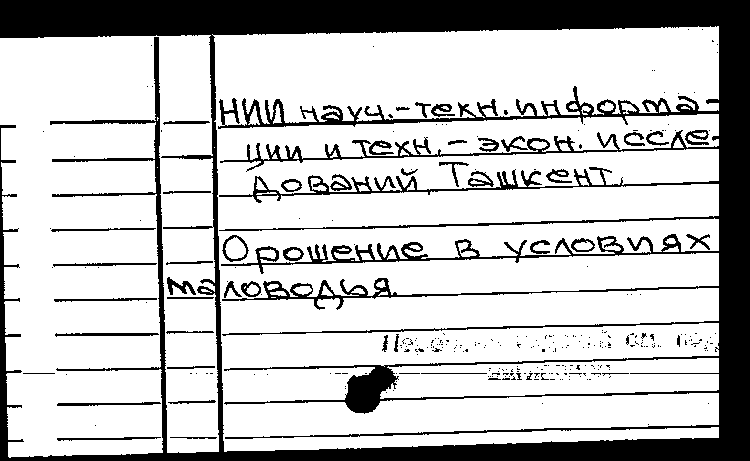 НИИ науч.-техн. информа-
ции и техн.-экон. иссле-
дований, Ташкент.
Орошение в условиях
маловодья.
см. под